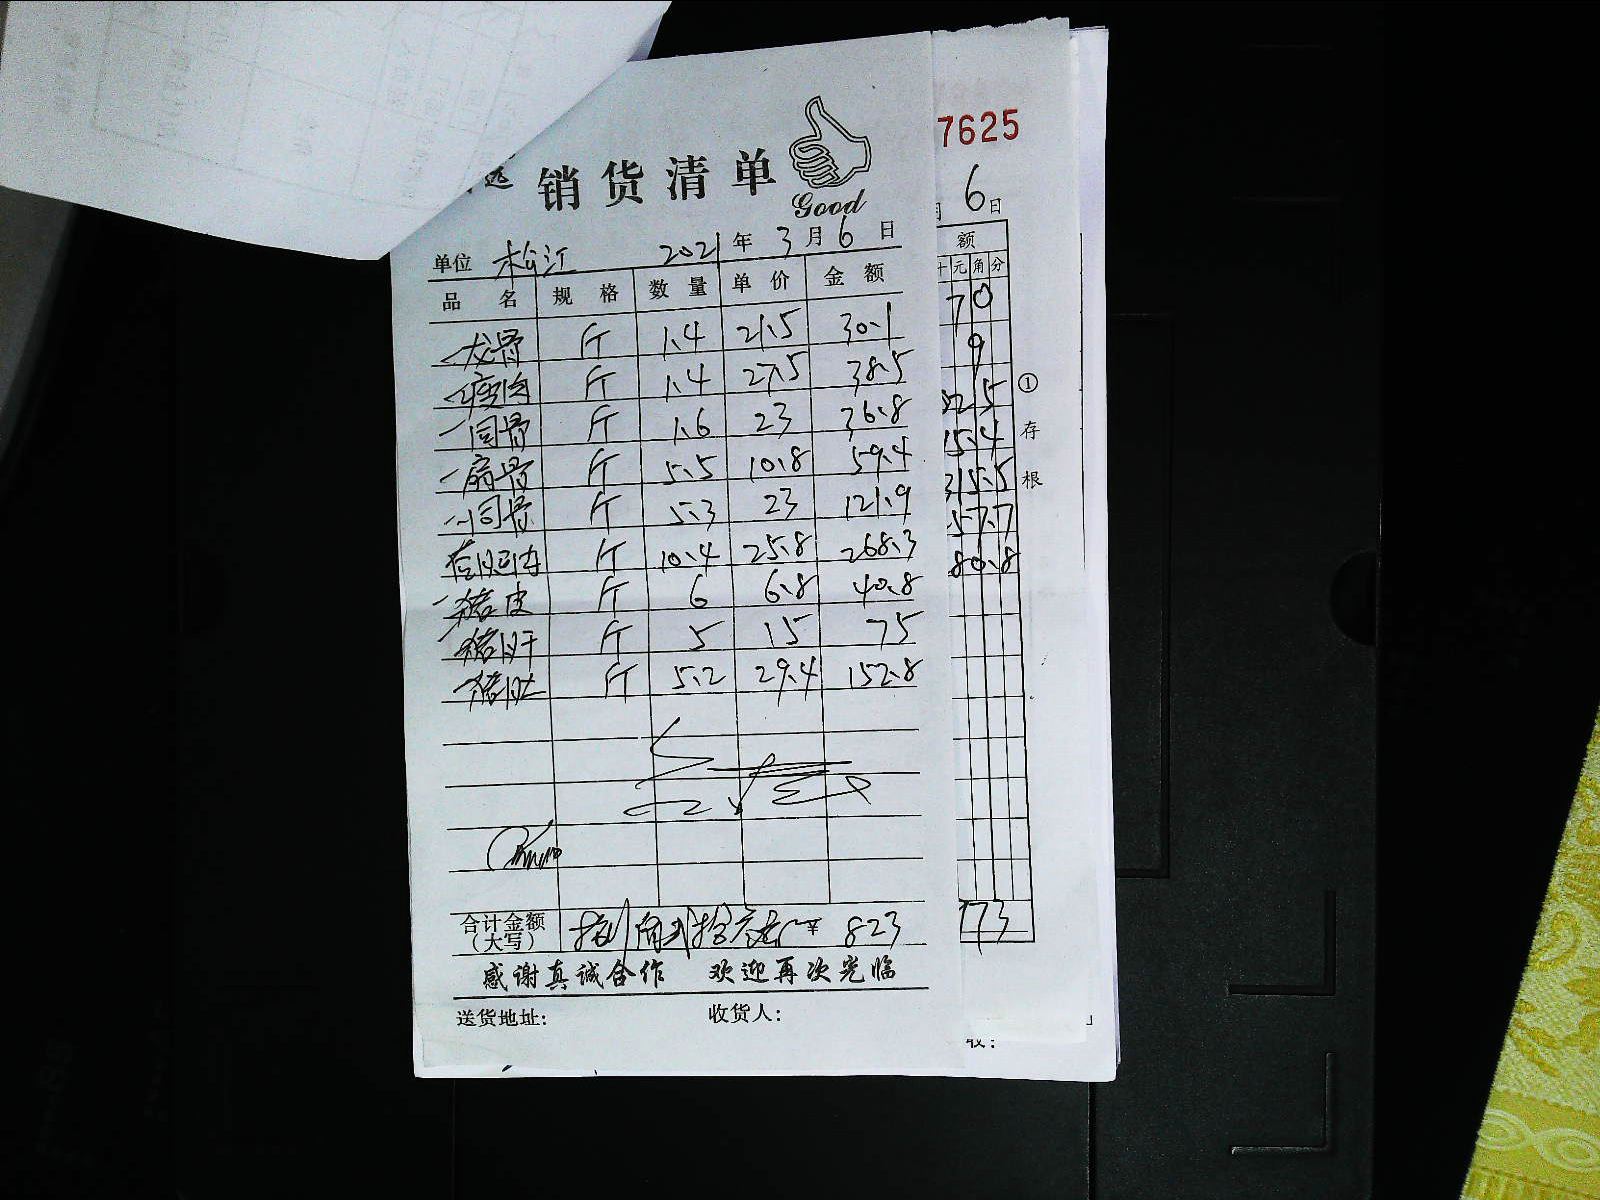 销货清单
Good
单位 松江 2021年3月6日
品名 规格 数量 单价 金额
龙骨 斤 1.4 21.5 30.1
瘦肉 斤 1.4 27.5 38.5
同骨 斤 1.6 23 36.8
扇骨 斤 5.5 10.8 59.4
同骨 斤 5.3 23 121.9
斤 10.4 25.8 268.3
猪皮 斤 6 6.8 40.8
猪肝 斤 5 15 75
猪肚 斤 5.2 29.4 152.8
合计金额（大写） ¥ 823
感谢真诚合作 欢迎再次光临
送货地址: 收货人:
7625
月 6日
额
十元角分
70
9
2.5
15.4
315.5
57.7
80.8
773
①存根
收: